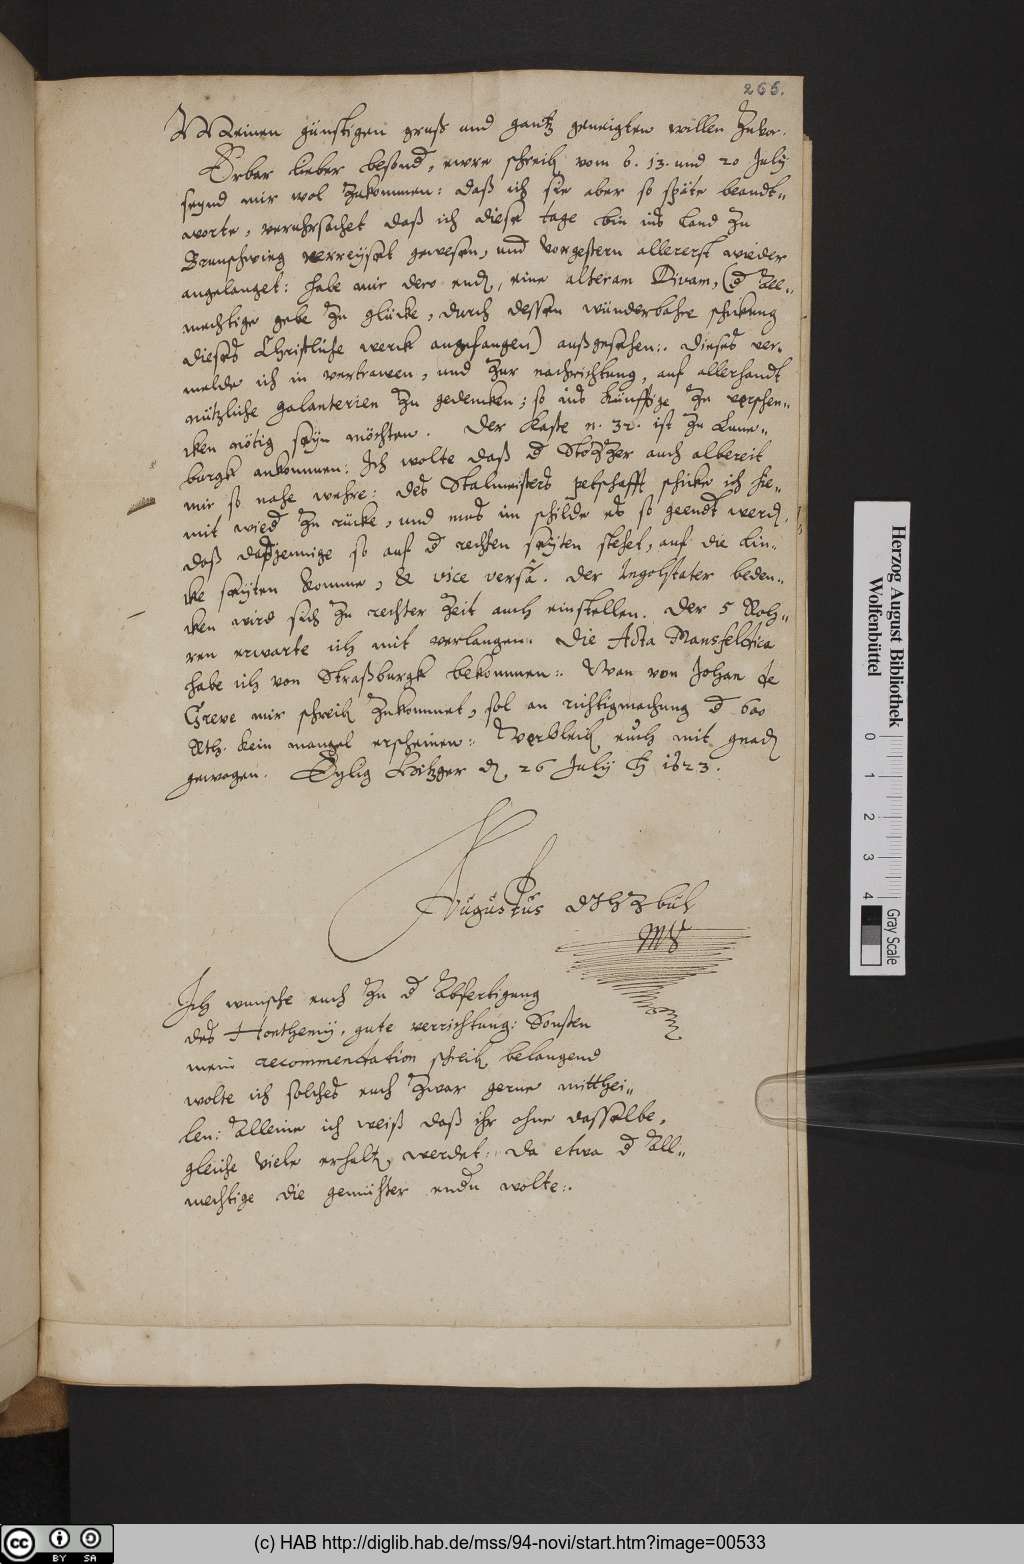 266.
Meinen günstigen gruß und gantz geneigten willen zuvor.
Erbar lieber besond, ewre schreib vom 6. 13. und 20 July
seynd mir wol zukommen: daß ich sie aber so späte beandt-
worte, veruhrsachet daß ich diese tage bin ins Land zu
Brunschwieg verreyset gewesen, und vorgestern allererst wieder
angelanget: habe mir dero end, eine alteram Divam, (d All-
mechtige gebe zu glücke, durch dessen wunderbahre schickung
dieses Christliche werck angefangen) außgesehen:. dieses ver-
melde ich in vertrawen, und zur nachrichtung, auf allerhandt
nützliche galanterien zu gedencken; so ins künfftige zu verschen-
cken nötig seyn möchten. Der Kaste n. 32. ist zu Lune-
burgk ankommen: Ich wolte daß d auch albereit
mir so nahe wehre: des Stalmeisters petschafft schicke ich hie-
mit wied zu rücke, und mus im schilde es so geendt werd,
daß dasjennige so auf d rechten seyten stehet, auf die lin-
cke seyten komme, & vice versâ. Der Ingolstater beden-
cken wird sich zu rechter zeit auch einstellen. Der 5 Roh-
ren erwarte ich mit verlangen: Die Acta Mansfeldica
habe ich von Straßburgk bekommen:. Wan von Johan de
Greve mir schreib zukommet, sol an richtigmachung d 600
Rth. kein mangel erscheinen:. Verbleib euch mit gnad
gewogen. Eylig Hitzger d. 26 July 1623.
Augustus DJHZBuL
Mp
Ich wunsche euch zu d Abfertigung
des Hoethemij, gute verrichtung: Sonsten
mein recommendation schreib belangend
wolte ich solches euch zwar gerne mitthei-
len: Alleine ich weiß daß ihr ohne dasselbe,
gleiche viele erhalt, werdet: da etwa d All-
mechtige die gemühter endn wolte:.
Herzog August Bibliothek
Wolfenbüttel
0 1 2 3 4
Gray Scale
cc BY SA
(c) HAB http://diglib.hab.de/mss/94-novi/start.htm?image=00533